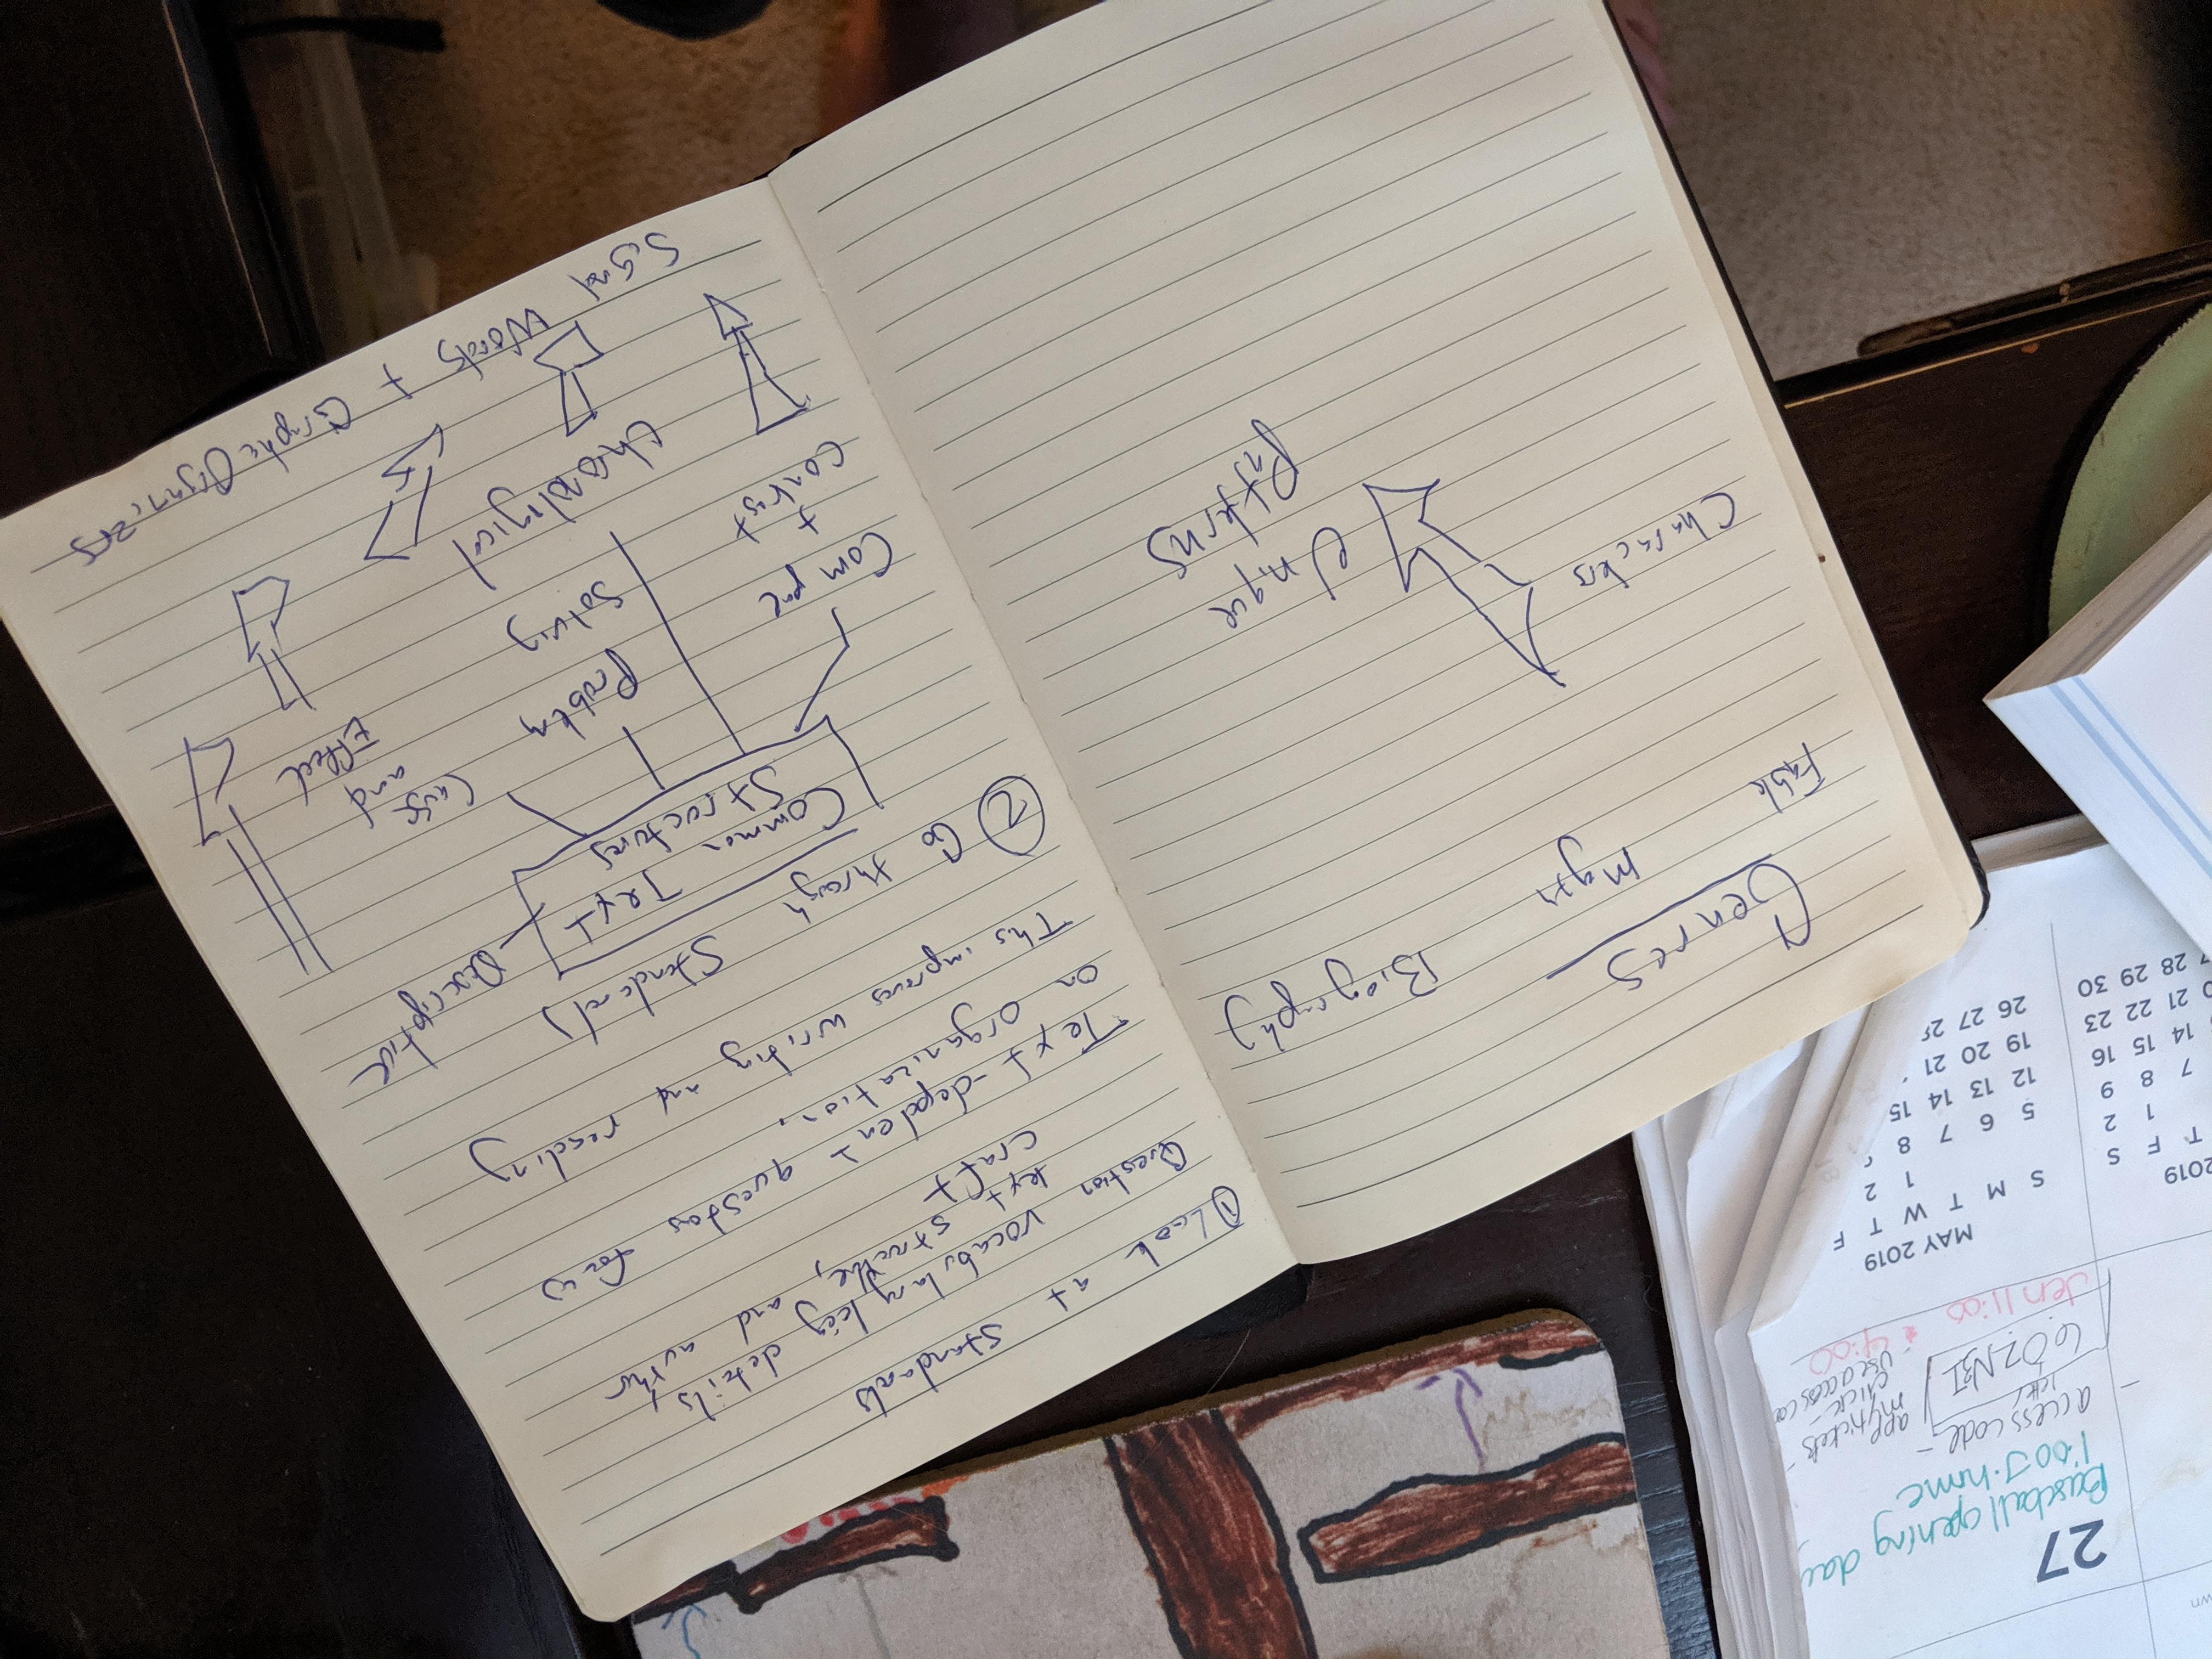 ① Look at standards
Question vocabulary key details
text structure, and author
craft
Text-dependent questions focus
on organization.
This improves writing and reading
② Go through Standards
Common Text
Structures
Descriptive
Cause
and
Effect
Problem
Solving
Chronological
Compare
+
contrast
Signal Words + Graphic Organizers
Genres
Fable
Myth
Biography
Characters
Unique
Patterns
27
Baseball opening day
1:00 J. home
access code -
letter
mytickets
app
click -
Jen 11:00
4:00
MAY 2019
S M T W T F
1 2
5 6 7 8
12 13 14 15
19 20 21
26 27 28
2019
T F S
1 2
7 8 9
14 15 16
21 22 23
28 29 30